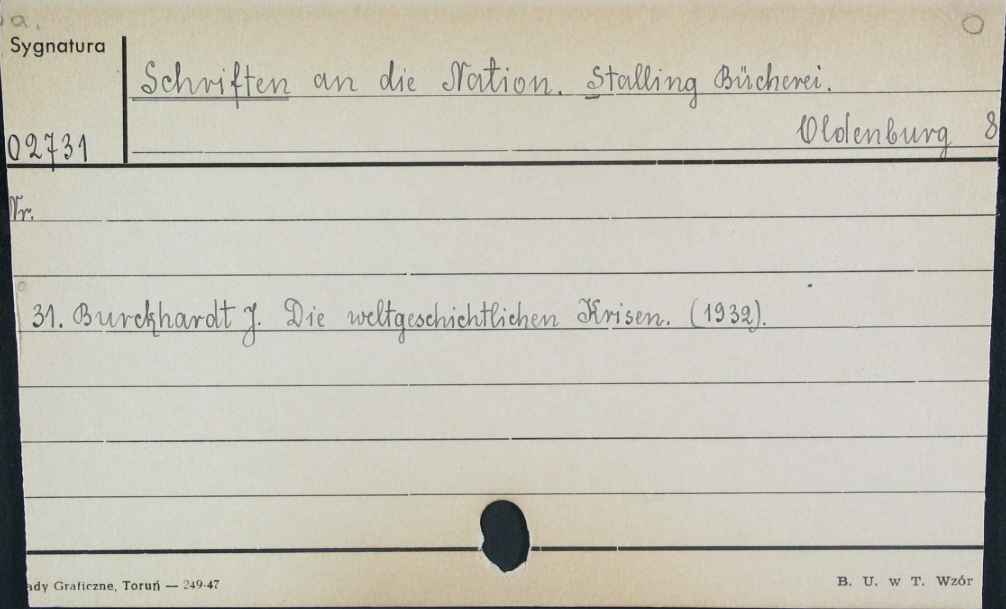 a.
Sygnatura
Schriften an die Nation. Stalling Bücherei.
Oldenburg 8
02731
Nr.
31. Burckhardt J. Die weltgeschichtlichen Krisen. (1932).
ady Graficzne, Toruń — 249-47
B. U. w T. Wzór